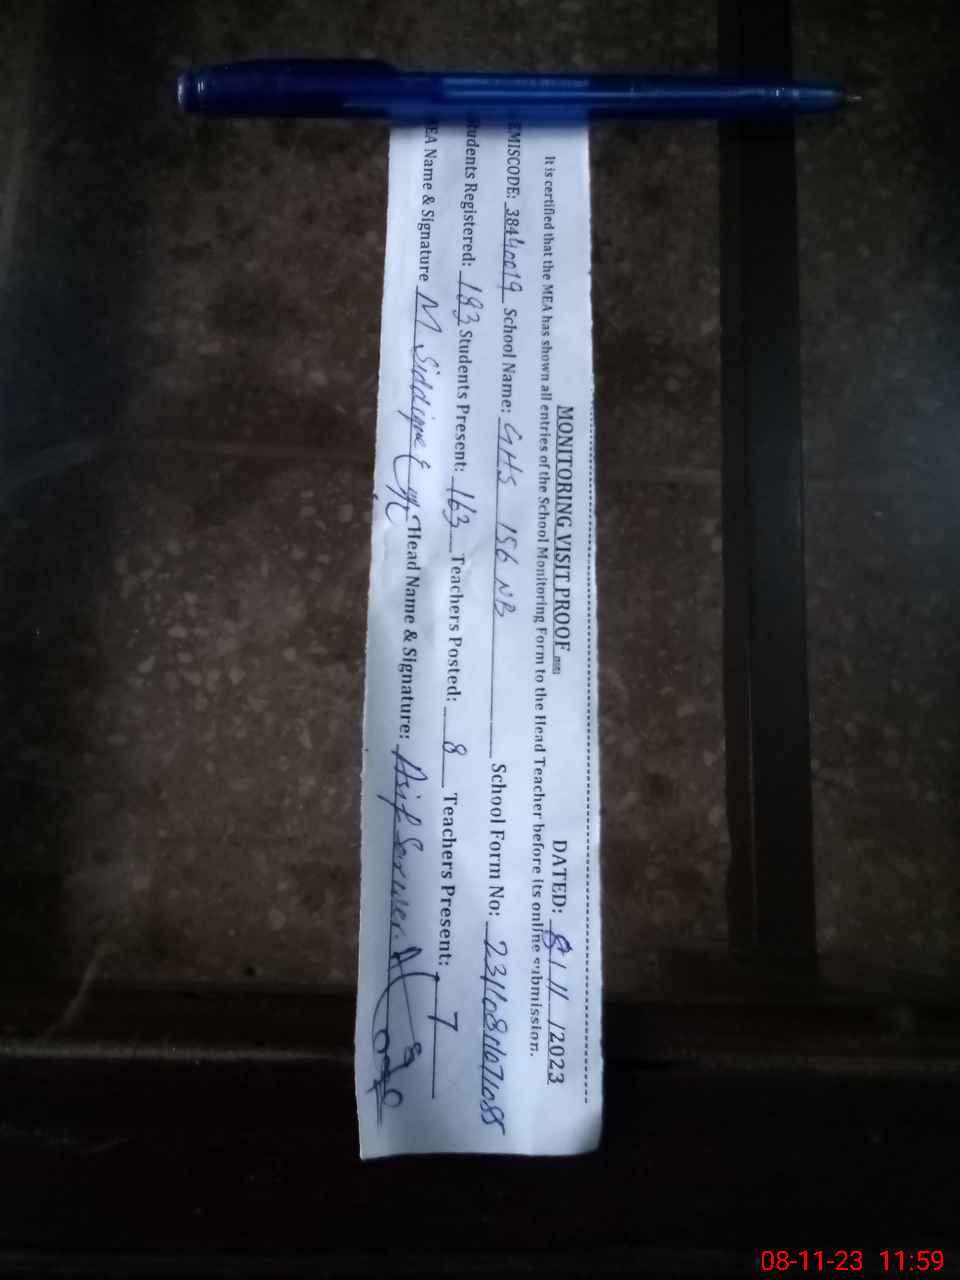 MONITORING VISIT PROOF DATED: 8/11/2023
It is certified that the MEA has shown all entries of the School Monitoring Form to the Head Teacher before its online submission.
EMISCODE: 38440019 School Name: GHS 156 NB School Form No:
Students Registered: 183 Students Present: 163 Teachers Posted: 8 Teachers Present: 7
MEA Name & Signature M Siddique Head Name & Signature: Asif Sarwar
08-11-23 11:59